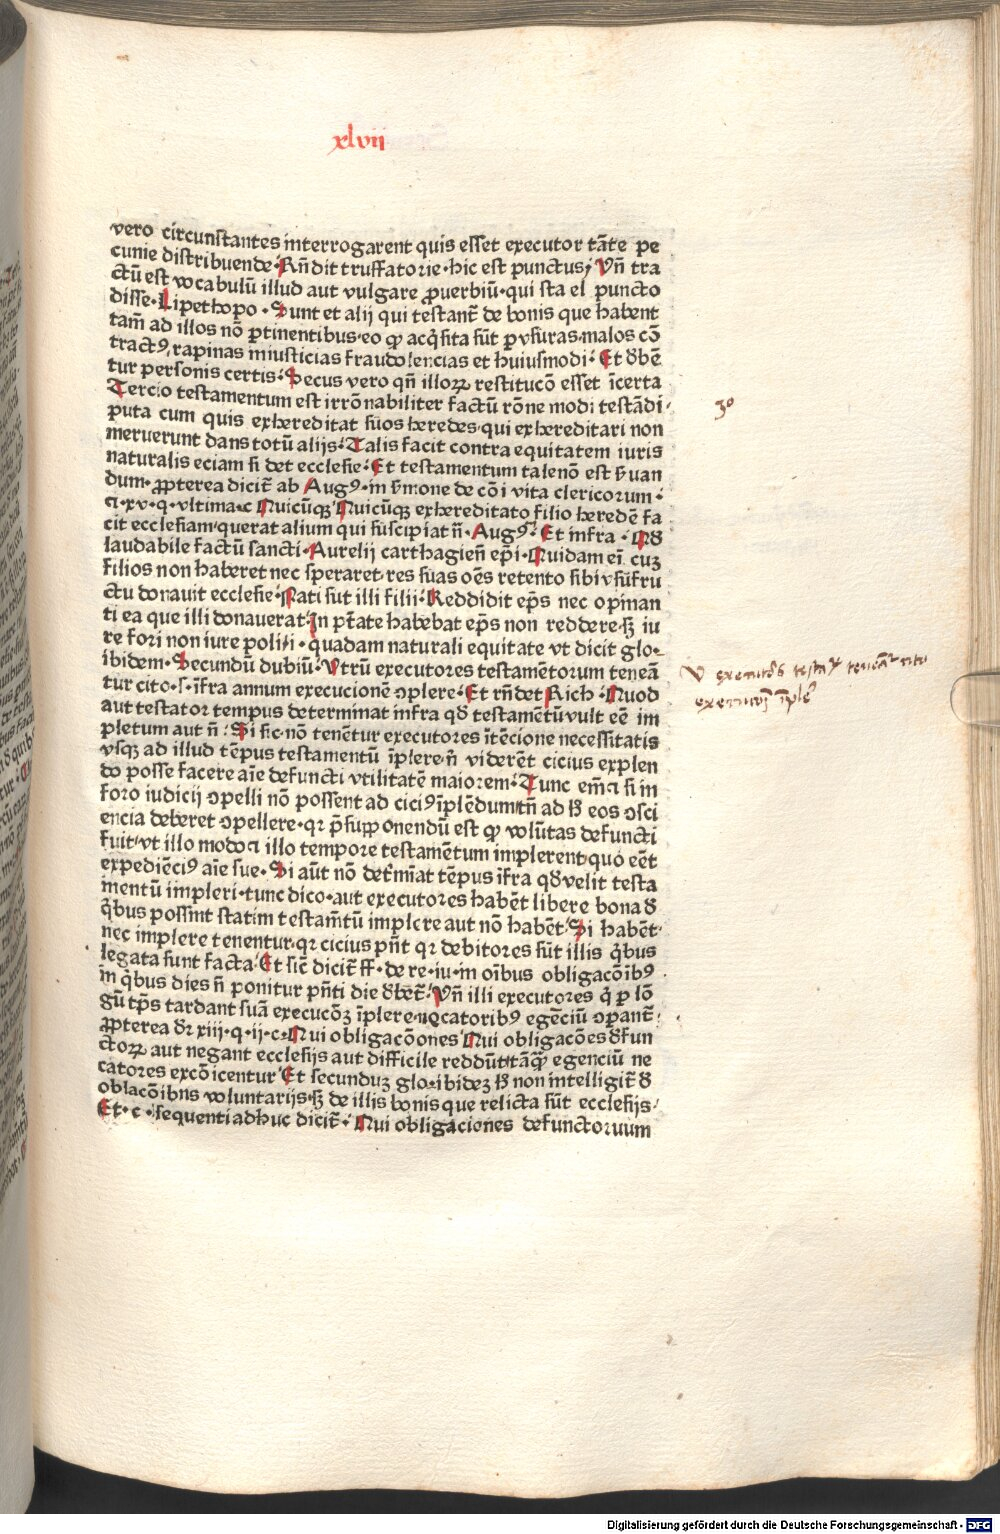 xlvii
vero circunstantes interrogarent quis esset executor tāte pe
cunie distribuende·Rn̄dit truffatorie·hic est punctus/ Vn̄ tra
ctū est vocabulū illud aut vulgare ꝓverbiū·qui sta el puncto
disse·Lipethopo·Sunt et alij qui testant̄ de bonis que habent
tam̄ ad illos nō ꝑtinentibus·eo ꝙ acq̄sita sūt ꝑ vsuras·malos cō
tractꝰ, rapinas iniusticias fraudolencias et huiusmodi· Et dēbē
tur personis certis·Secus vero qn̄ illoꝝ restitucō esset īcerta
Tercio testamentum est irrōnabiliter factū rōne modi testādi·
3º
puta cum quis exhereditat suos heredes·qui exhereditari non
meruerunt dans totū alijs·Talis facit contra equitatem iuris
naturalis eciam si det ecclesie·Et testamentum tale nō est s̄uan
dum·ꝓpterea dicit̄ ab Augꝰ·in s̄mone de cōi vita clericorum·
⁊·xv·q·vltima·c Quicūqꝫ Quicūqꝫ exhereditato filio heredē fa
cit ecclesiam/querat alium qui suscipiat n̄·Augꝰ·Et infra·Qd̄
laudabile factū sancti·Aurelij carthagien̄ ep̄i·Quidam eī cuꝫ
filios non haberet nec speraret·res suas oēs retento sibi vsūfru
ctu donauit ecclesie·Nati sūt illi filii·Reddidit ep̄s nec opinan
ti ea que illi donauerat·In ptāte habebat ep̄s non reddere·sꝫ iu
re fori non iure poli·i·quadam naturali equitate vt dicit glo·
ibidem·Secundū dubiū·Vtrū executores testamētorum teneā
V executōs testaꝝ teneāt cito
executōꝫ īple
tur cito·s·īfra annum execucionē ꝯplere·Et rn̄det Rich·Quod
aut testator tempus determinat infra qd̄ testamētū vult eē im
pletum aut n̄·Si sic·nō tenētur executores ītēcione necessitatis
vsqꝫ ad illud tēpus testamentū īplere·n̄ viderēt cicius explen
do posse facere aīe defuncti vtilitatē maiorem·Tunc em̄ ⁊ si in
foro iudicij ꝯpelli nō possent ad ciciꝰ īplēdum/tn̄ ad h̄ eos ꝯsci
encia deberet ꝯpellere·qr p̄supponendū est ꝙ volūtas defuncti
fuit/vt illo modo ⁊ illo tempore testamētum implerent·quo eēt
expediēciꝰ aīe sue·Si aūt nō det̄miat tēpus īfra qd̄ velit testa
mentū impleri·tunc dico·aut executores habēt libere bona d̄
q̄bus possint statim testam̄tū implere aut nō habēt·Si habēt·
nec implere tenentur·qr cicius pn̄t qr debitores sūt illis q̄bus
legata sunt facta·Et sic dicit̄ ff·de re·iu·in oībus obligacōibꝰ
in q̄bus dies n̄ ponitur pn̄ti die debet̄·Vn̄ illi executores q̄ ꝑ lō
gū tp̄s tardant suā execucōꝫ īplere·necatoribꝰ egēciū ꝯparant̄·
ꝓpterea dr xiii·q·ii·c·Qui obligacōones Qui obligacōes defun
ctoꝝ aut negant ecclesijs aut difficile reddūt/tāqꝫ egenciū ne
catores excōicentur Et secunduꝫ glo·ibideꝫ h̄ non intelligit̄ d̄
oblacōibus voluntarijs·sꝫ de illis bonis que relicta sūt ecclesijs·
Et·c·sequenti adhuc dicit̄·Qui obligaciones defunctoruum
Digitalisierung gefördert durch die Deutsche Forschungsgemeinschaft - DFG